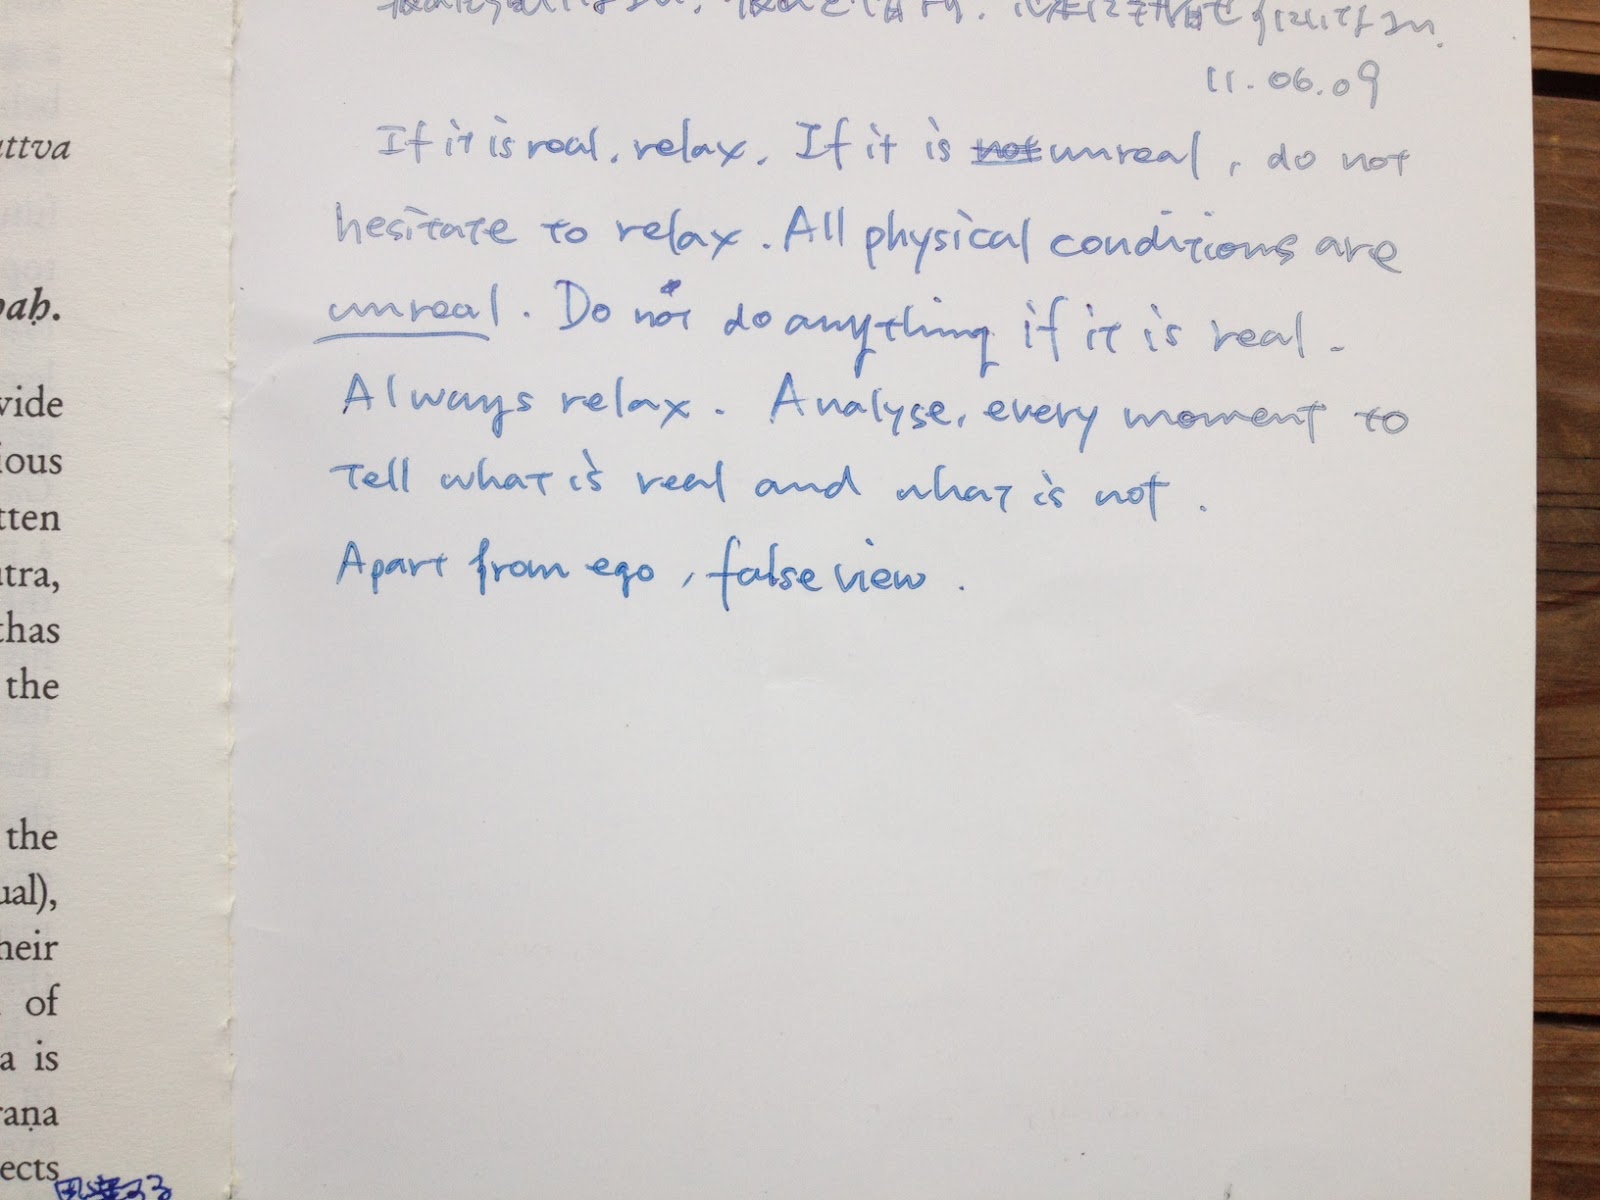 11.06.09
If it is real, relax. If it is not unreal, do not
hesitate to relax. All physical conditions are
unreal. Do not do anything if it is real.
Always relax. Analyse, every moment to
tell what is real and what is not.
Apart from ego, false view.
attva
paḥ.
vide
ious
tten
utra,
thas
the
the
ual),
heir
of
a is
raṇa
ects